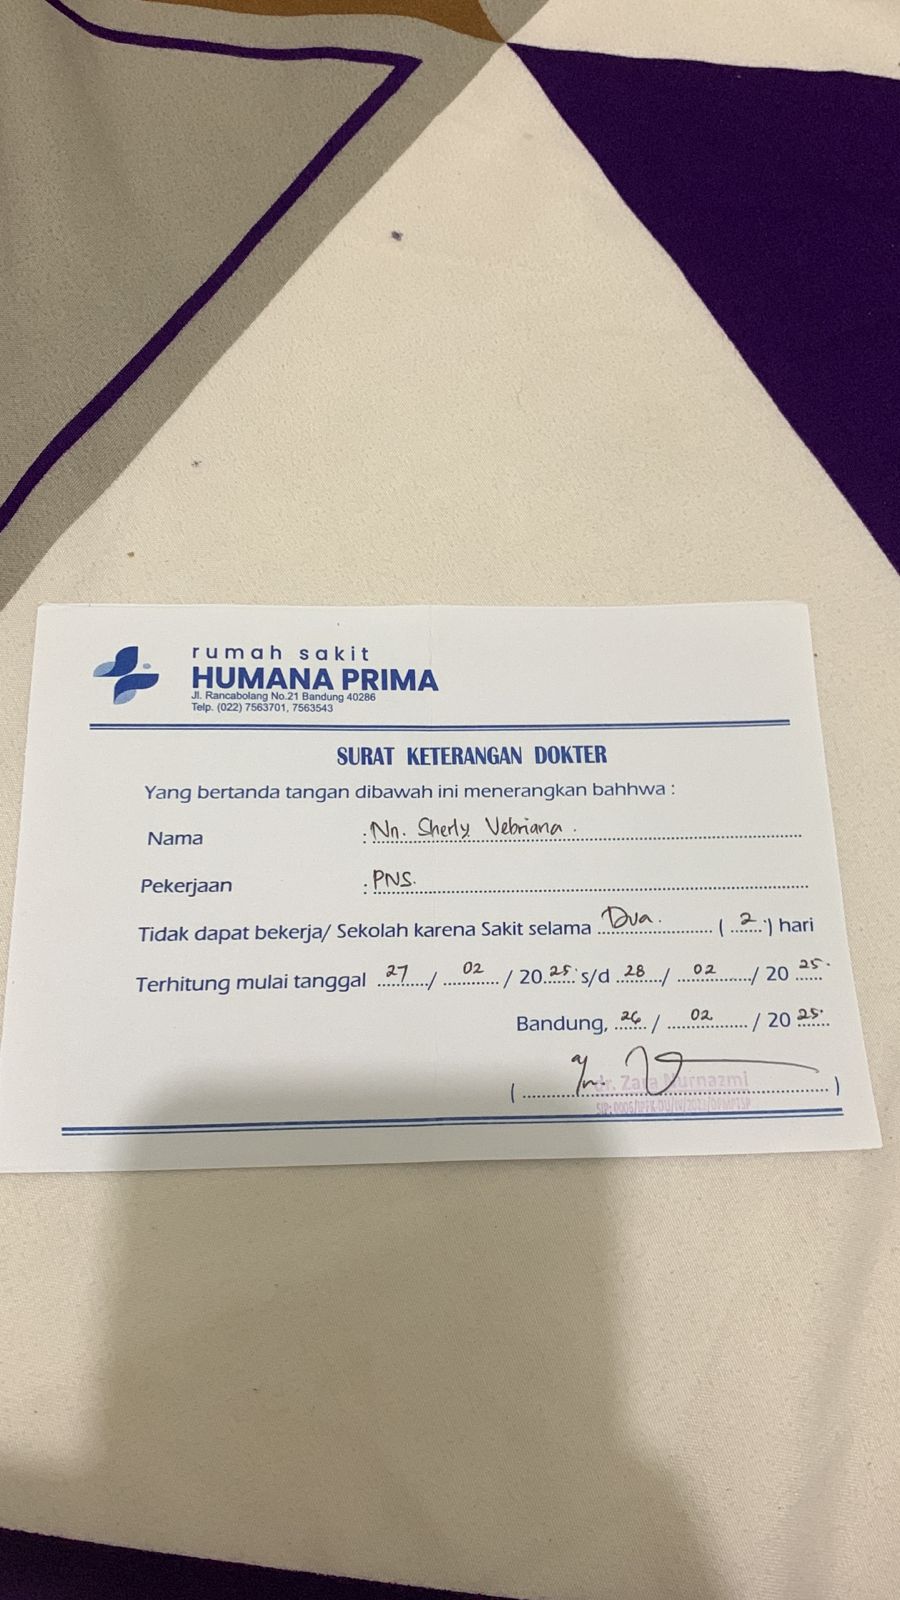 rumah sakit
HUMANA PRIMA
Jl. Rancabolang No.21 Bandung 40286
Telp. (022) 7563701, 7563543
SURAT KETERANGAN DOKTER
Yang bertanda tangan dibawah ini menerangkan bahhwa :
Nama : Nn. Sherly Vebriana.
Pekerjaan : PNS.
Tidak dapat bekerja/ Sekolah karena Sakit selama Dua. ( 2 ) hari
Terhitung mulai tanggal 27 / 02 / 20 25 s/d 28 / 02 / 20 25
Bandung, 26 / 02 / 20 25
a/n.
( dr. Zara Nurnazmi )